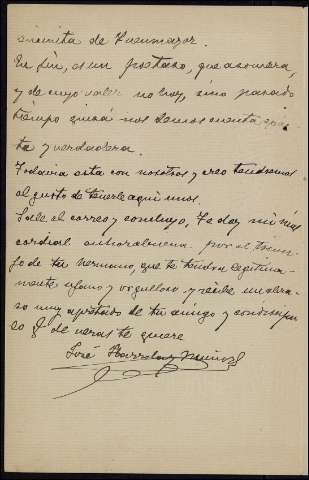 de Fuenmayor.
En fin, es un poetazo, que asombra,
y de cuyo valer no hay, sino pasado
tiempo quizá nos demos cuenta
ta y verdadera.
Todavia esta con nosotros y creo tendremos
el gusto de tenerle aqui unos.
Sale el correo y concluyo, Te doy mi más
cordial enhorabuena por el triun-
fo de tu hermano, que te tendra legitima-
mente ufano y orgulloso y recibe un abra-
zo muy apretado de tu amigo y condiscipu-
lo q. de veras te quiere
José Muñoz